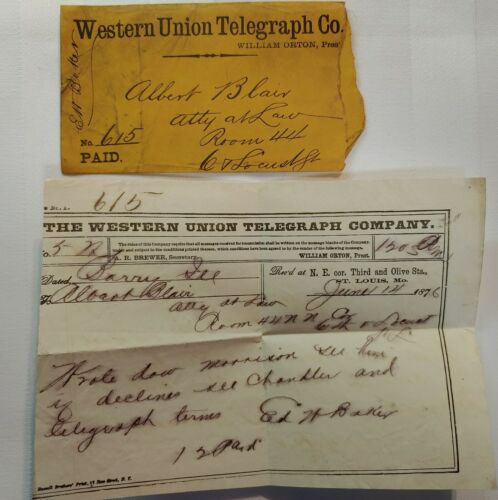 Western Union Telegraph Co.
WILLIAM ORTON, Prest
E W Baker
Albert Blair
Atty at Law
Room 44
6 & Locust St
No. 615
PAID.
615
THE WESTERN UNION TELEGRAPH COMPANY.
The rules of this Company require that all messages received for transmission shall be written on the message blanks of the Company,
under and subject to the conditions printed thereon, which conditions have been agreed to by the sender of the following message.
A. R. BREWER, Secretary. WILLIAM ORTON, Prest.
Dated, Barry Ill
Rec'd at N. E. cor. Third and Olive Sts.,
ST. LOUIS, Mo.
June 14 1876
To Albert Blair
Atty at Law
Room 44
Wrote dow morrison see him
if declines see Chandler and
telegraph terms Ed W Baker
12 Paid
Russell Brothers' Print, 17 Rose Street, N. Y.